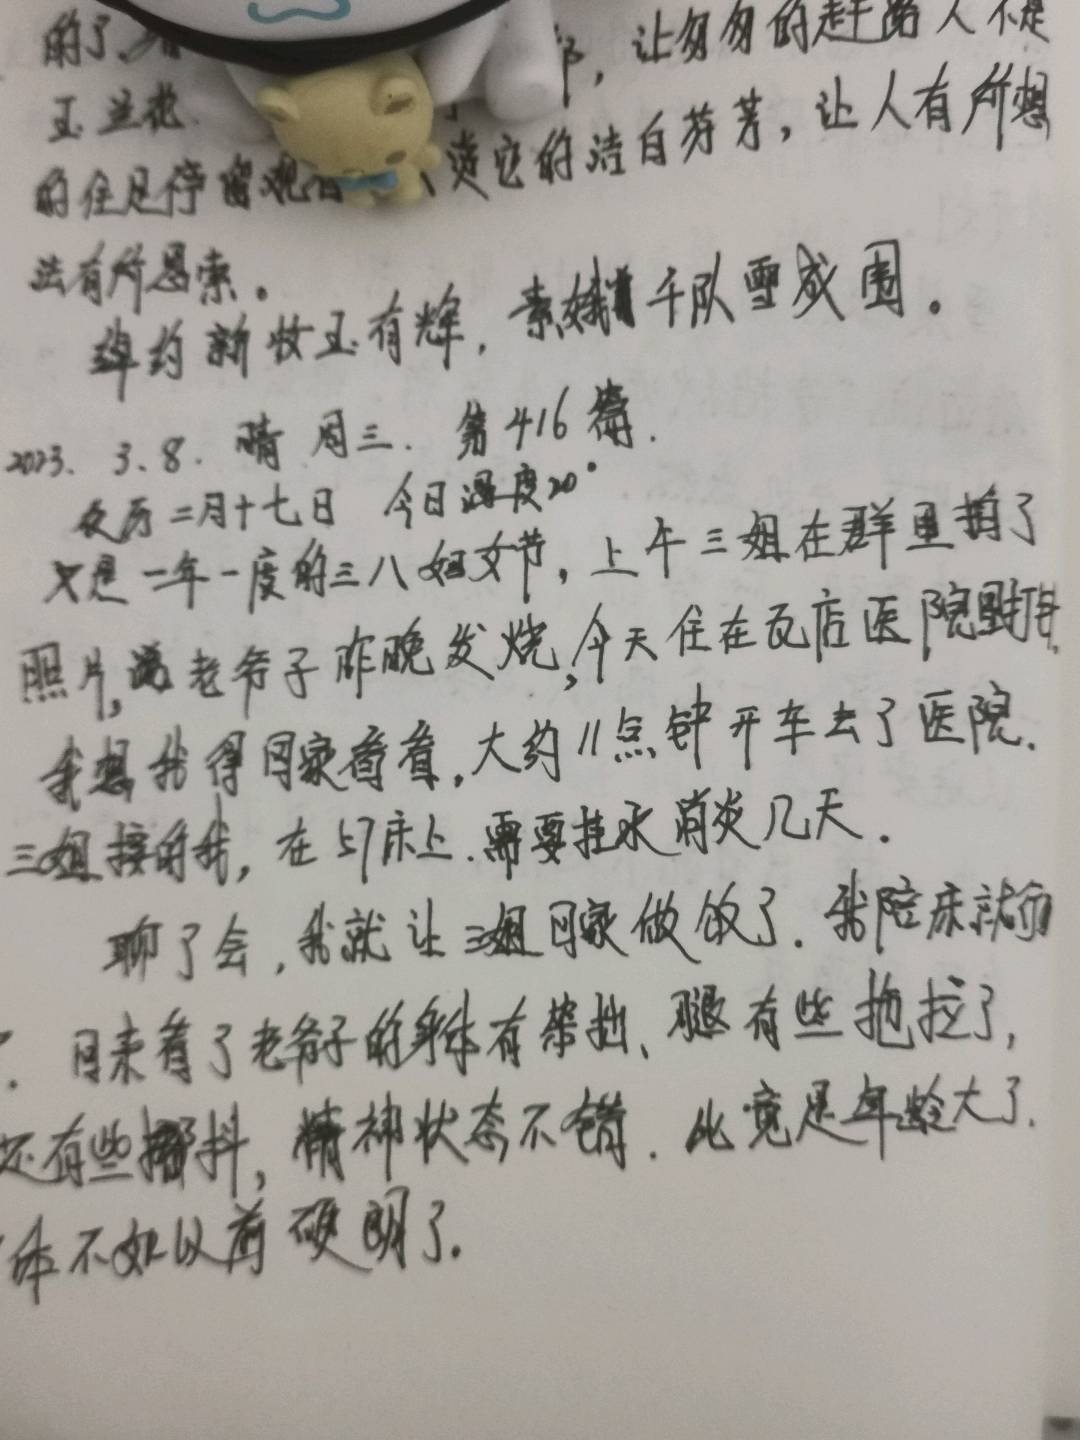 的了、让匆匆的赶路人不是
玉兰花
的住足停留观它的洁白芬芳，让人有所想
法有所思索。
绰约新妆玉有辉，素娥千队雪成围。
2023. 3.8. 晴 周三. 第416篇.
农历二月十七日 今日温度20°
又是一年一度的三八妇女节，上午三姐在群里拍了
照片，说老爷子昨晚发烧，今天住在瓦店医院里
我想我得回家看看，大约11点钟开车去了医院.
三姐接的我，在57床上.需要挂水消炎几天.
聊了会，我就让三姐回家做饭了.我陪床就
回来看了老爷子的身体有柴拙、腿有些拖拉了，
还有些抖，精神状态不错.比竟是年龄大了.
体不如以前硬朗了.